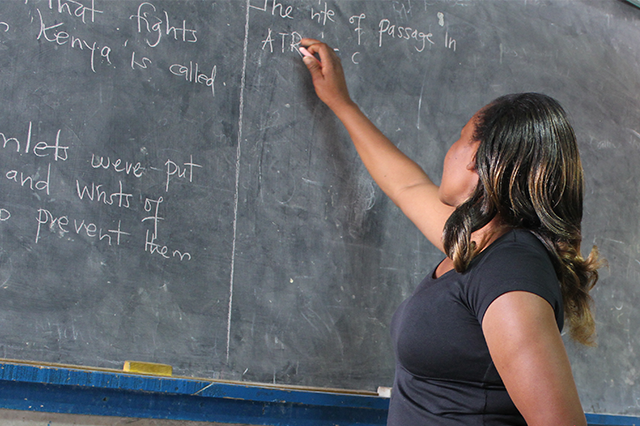 that fights
Kenya is called.
mlets were put
and wrists of
prevent them
The rite of passage in
ATR
C